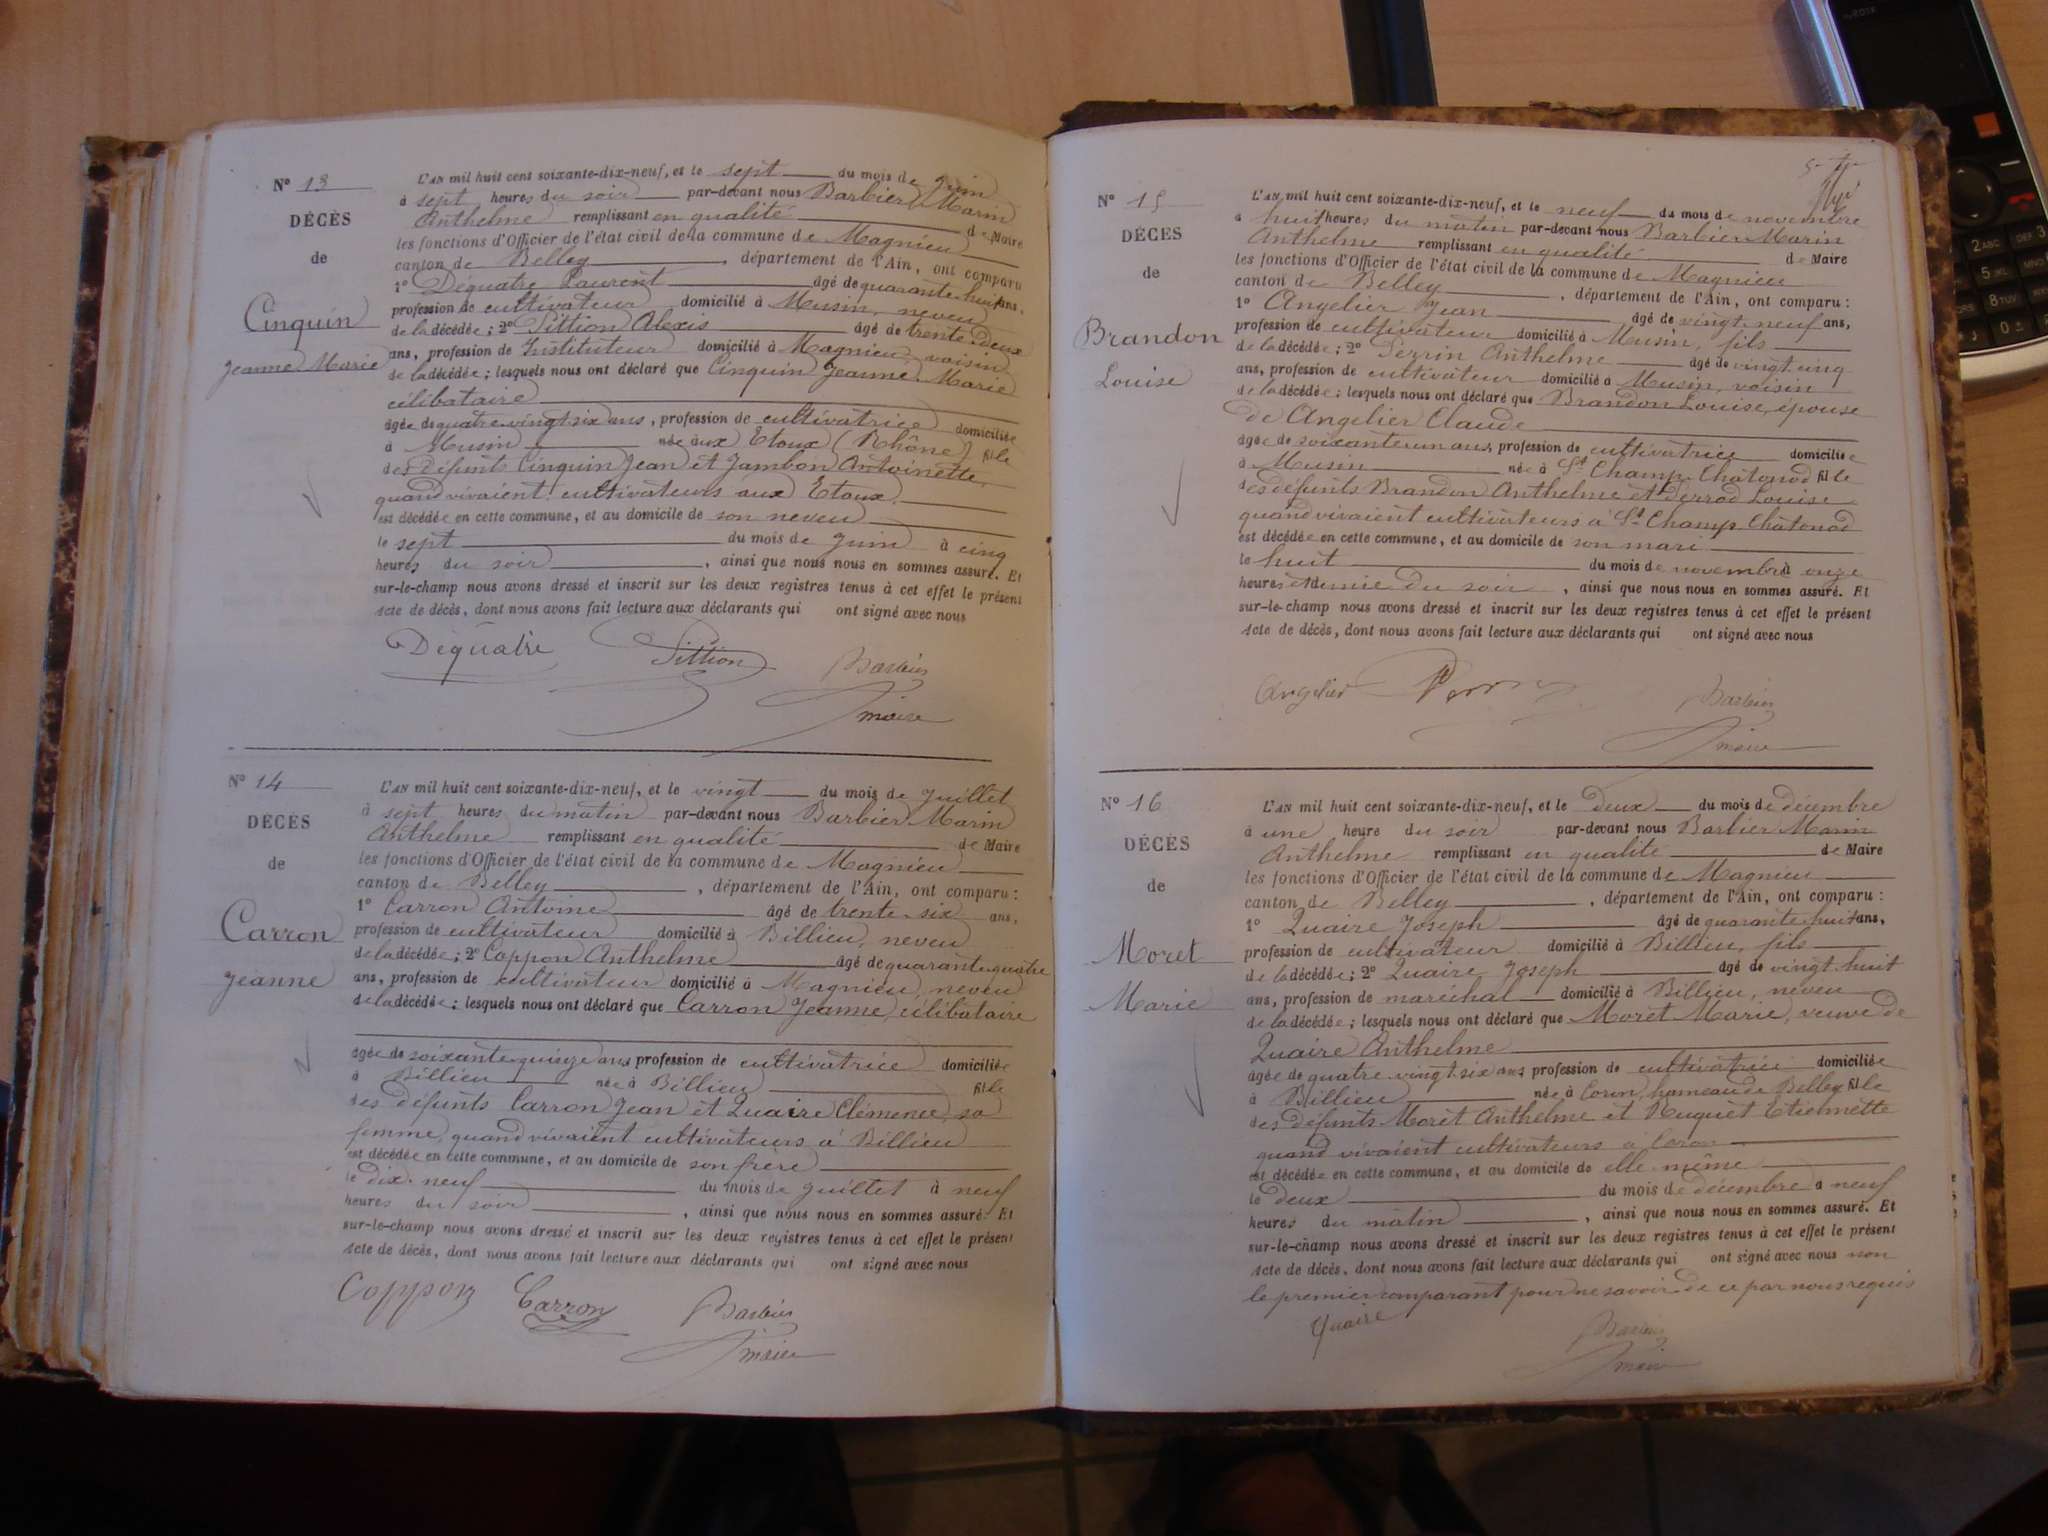 N° 13
DÉCÈS
de
Cinquin
Jeanne Marie
L'AN mil huit cent soixante-dix-neuf, et le sept du mois de Juin
à sept heures du soir par-devant nous Barbier Marin
Anthelme remplissant en qualité de Maire
les fonctions d'Officier de l'état civil de la commune de Magnieu
canton de Belley, département de l'Ain, ont comparu
1° Déquatre Laurent âgé de quarante huit ans,
profession de cultivateur domicilié à Musin, neveu
de la décédée; 2° Sittion Alexis âgé de trente deux
ans, profession de Instituteur domicilié à Magnieu, voisin
de la décédée; lesquels nous ont déclaré que Cinquin Jeanne Marie
célibataire
âgée de quatre vingt six ans, profession de cultivatrice domiciliée
à Musin née aux Etoux (Rhône) fille
des défunts Cinquin Jean et Jambon Antoinette,
quand vivaient cultivateurs aux Etoux
est décédée en cette commune, et au domicile de son neveu
le sept du mois de Juin à cinq
heures du soir, ainsi que nous nous en sommes assuré. Et
sur-le-champ nous avons dressé et inscrit sur les deux registres tenus à cet effet le présent
Acte de décès, dont nous avons fait lecture aux déclarants qui ont signé avec nous
Déquatre Sittion Barbier
maire
N° 14
DÉCÈS
de
Carron
Jeanne
L'AN mil huit cent soixante-dix-neuf, et le vingt du mois de Juillet
à sept heures du matin par-devant nous Barbier Marin
Anthelme remplissant en qualité de Maire
les fonctions d'Officier de l'état civil de la commune de Magnieu
canton de Belley, département de l'Ain, ont comparu :
1° Carron Antoine âgé de trente-six ans,
profession de cultivateur domicilié à Billieu, neveu
de la décédée; 2° Coppon Anthelme âgé de quarante quatre
ans, profession de cultivateur domicilié à Magnieu, neveu
de la décédée; lesquels nous ont déclaré que Carron Jeanne, célibataire
âgée de soixante quinze ans profession de cultivatrice domiciliée
à Billieu née à Billieu fille
des défunts Carron Jean et Quaire Clémence, sa
femme, quand vivaient cultivateurs à Billieu
est décédée en cette commune, et au domicile de son frère
le dix-neuf du mois de Juillet à neuf
heures du soir, ainsi que nous nous en sommes assuré. Et
sur-le-champ nous avons dressé et inscrit sur les deux registres tenus à cet effet le présent
Acte de décès, dont nous avons fait lecture aux déclarants qui ont signé avec nous
Coppon Carron Barbier
maire
N° 15
DÉCES
de
Brandon
Louise
L'AN mil huit cent soixante-dix-neuf, et le neuf du mois de novembre
à huit heures du matin par-devant nous Barbier Marin
Anthelme remplissant en qualité de Maire
les fonctions d'Officier de l'état civil de la commune de Magnieu
canton de Belley, département de l'Ain, ont comparu :
1° Angelier Jean âgé de vingt-neuf ans,
profession de cultivateur domicilié à Musin, fils
de la décédée; 2° Perrin Anthelme âgé de vingt cinq
ans, profession de cultivateur domicilié à Musin, voisin
de la décédée; lesquels nous ont déclaré que Brandon Louise, épouse
de Angelier Claude
âgée de soixante un ans, profession de cultivatrice domiciliée
à Musin née à St Champ Chatonod fille
des défunts Brandon Anthelme et Louise
quand vivaient cultivateurs à St Champ Chatonod
est décédée en cette commune, et au domicile de son mari
le huit du mois de novembre à onze
heures et demie du soir, ainsi que nous nous en sommes assuré. Et
sur-le-champ nous avons dressé et inscrit sur les deux registres tenus à cet effet le présent
Acte de décès, dont nous avons fait lecture aux déclarants qui ont signé avec nous
Angelier Barbier
maire
N° 16
DÉCÈS
de
Moret
Marie
L'AN mil huit cent soixante-dix-neuf, et le deux du mois de décembre
à une heure du soir par-devant nous Barbier Marin
Anthelme remplissant en qualité de Maire
les fonctions d'Officier de l'état civil de la commune de Magnieu
canton de Belley, département de l'Ain, ont comparu :
1° Quaire Joseph âgé de quarante huit ans,
profession de cultivateur domicilié à Billieu, fils
de la décédée; 2° Quaire Joseph âgé de vingt huit
ans, profession de maréchal domicilié à Billieu, neveu
de la décédée; lesquels nous ont déclaré que Moret Marie, veuve de
Quaire Anthelme
âgée de quatre vingt six ans profession de cultivatrice domiciliée
à Billieu née à Coron, hameau de Belley fille
des défunts Moret Anthelme et Huguet Etiennette
quand vivaient cultivateurs à Coron
est décédée en cette commune, et au domicile de elle même
le deux du mois de décembre à neuf
heures du matin, ainsi que nous nous en sommes assuré. Et
sur-le-champ nous avons dressé et inscrit sur les deux registres tenus à cet effet le présent
Acte de décès, dont nous avons fait lecture aux déclarants qui ont signé avec nous non
le premier comparant pour ne savoir de ce par nous requis
Quaire Barbier
maire